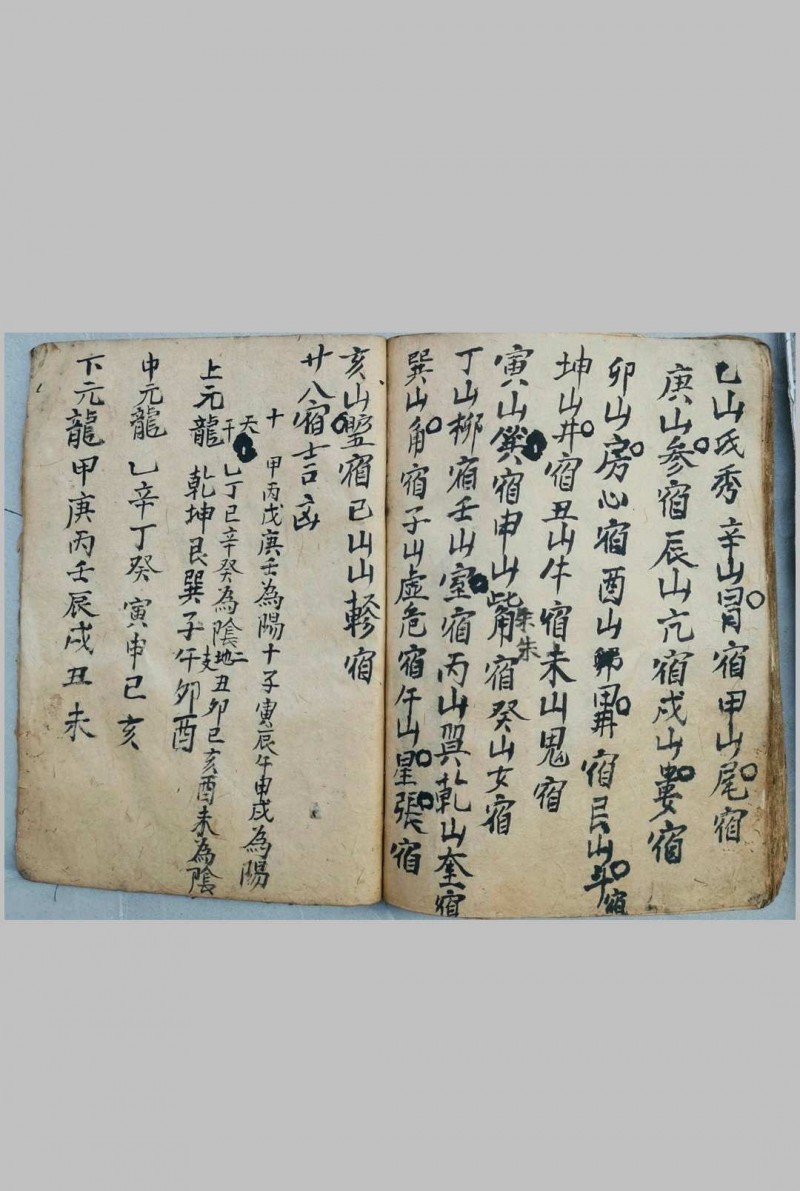 乙山氐秀辛山胃宿甲山尾宿
庚山参宿辰山亢宿戍山婁宿
卯山房心宿酉山昴宿艮山斗宿
坤山井宿丑山牛宿未山鬼宿
寅山箕宿申山觜宿癸山女宿
丁山柳宿壬山室宿丙山翼乾山奎宿
巽山角宿子山虛危宿午山星張宿
亥山壁宿巳山山軫宿
廿八宿言凶
十天干
甲丙戊庚壬為陽十子寅辰午申戌為陽
乙丁己辛癸為陰二地支丑卯巳亥酉未為陰
上元龍乾坤艮巽子午卯酉
中元龍乙辛丁癸寅申巳亥
下元龍甲庚丙壬辰戍丑未